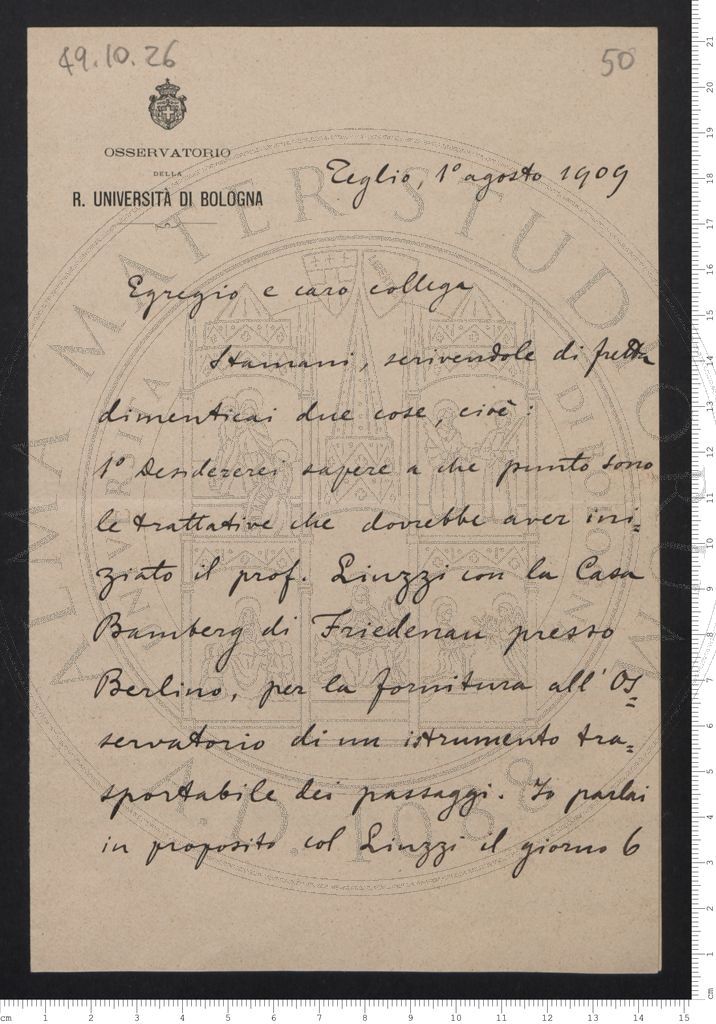 49.10.26
50
OSSERVATORIO
DELLA
R. UNIVERSITÀ DI BOLOGNA
Teglio, 1º agosto 1909
Egregio e caro collega
Stamani, scrivendole di fretta
dimenticai due cose, cioè:
1º Desidererei sapere a che punto sono
le trattative che dovrebbe aver ini=
ziato il prof. Liuzzi con la Casa
Bamberg di Friedenau presso
Berlino, per la fornitura all'Os=
servatorio di un istrumento tra=
sportabile dei passaggi. Io parlai
in proposito col Liuzzi il giorno 6
ALMA MATER STUDIORUM
A.D. 1088